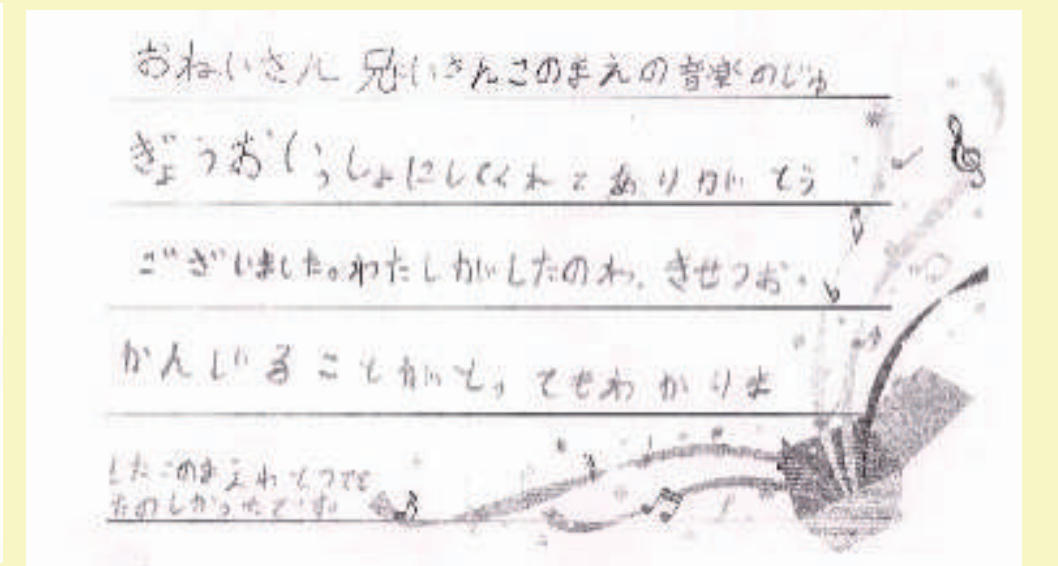 おねいさん 兄いさんこのまえの音楽のじゅ
ぎょうおいっしょにしてくれてありがとう
ございました。わたしがしたのわ、きせつお
かんじることがとってもわかりま
したこのまえわとつても
たのしかったです。